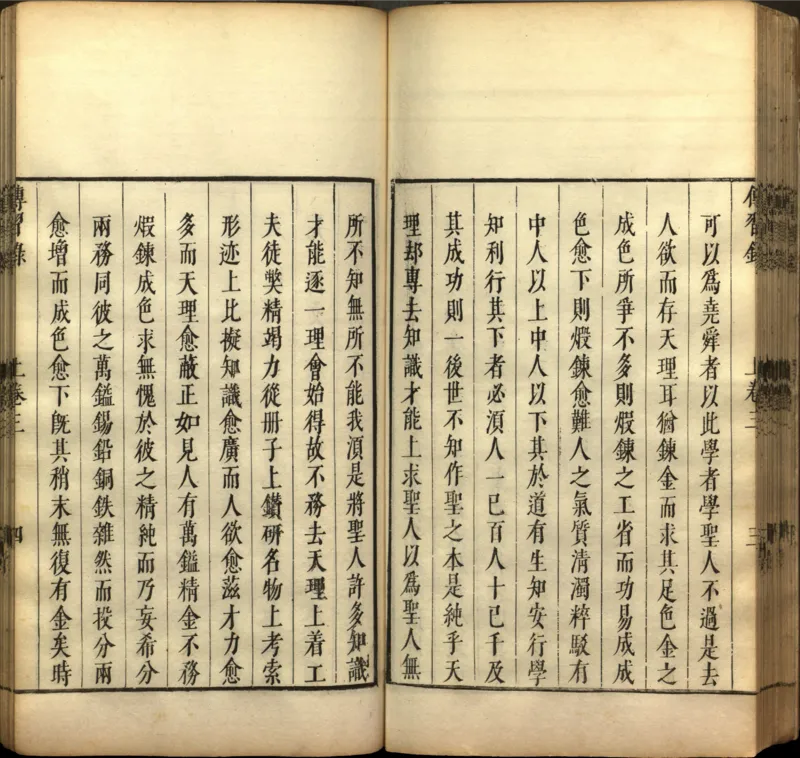 傳習錄 上卷三 三
可以爲堯舜者以此學者學聖人不過是去
人欲而存天理耳猶鍊金而求其足色金之
成色所爭不多則煅鍊之工省而功易成成
色愈下則煅鍊愈難人之氣質清濁粹駁有
中人以上中人以下其於道有生知安行學
知利行其下者必湏人一己百人十己千及
其成功則一後世不知作聖之本是純乎天
理却專去知識才能上求聖人以爲聖人無
所不知無所不能我湏是將聖人許多知識
才能逐一理會始得故不務去天理上着工
夫徒獘精竭力從册子上鑽研名物上考索
形迹上比擬知識愈廣而人欲愈滋才力愈
多而天理愈蔽正如見人有萬鎰精金不務
煅鍊成色求無愧於彼之精純而乃妄希分
兩務同彼之萬鎰錫鉛銅鉄雜然而投分兩
愈增而成色愈下旣其稍末無復有金矣時
傳習錄 上卷三 四